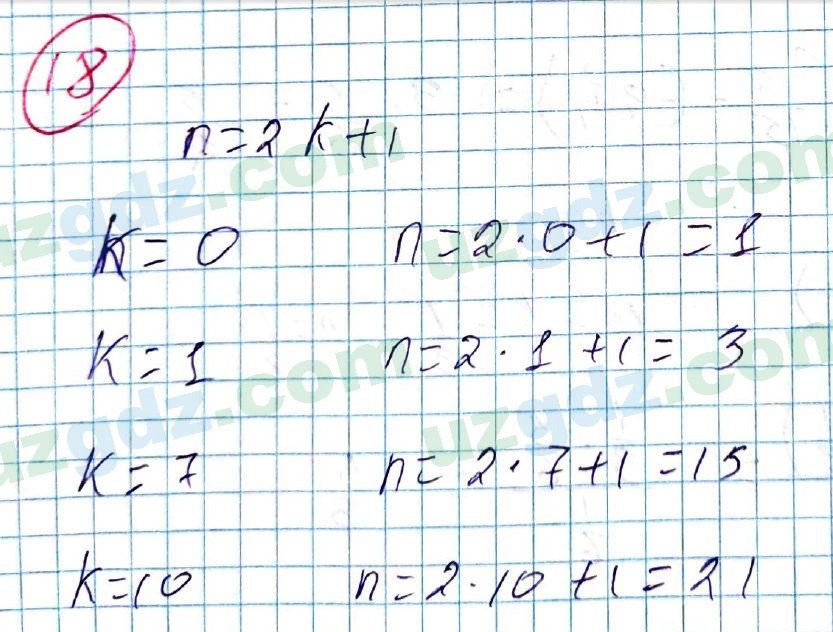 18
n=2k+1
K=0 n=2·0+1=1
K=1 n=2·1+1=3
K=7 n=2·7+1=15
K=10 n=2·10+1=21
uzgdz.com uzgdz.com
uzgdz.com uzgdz.com